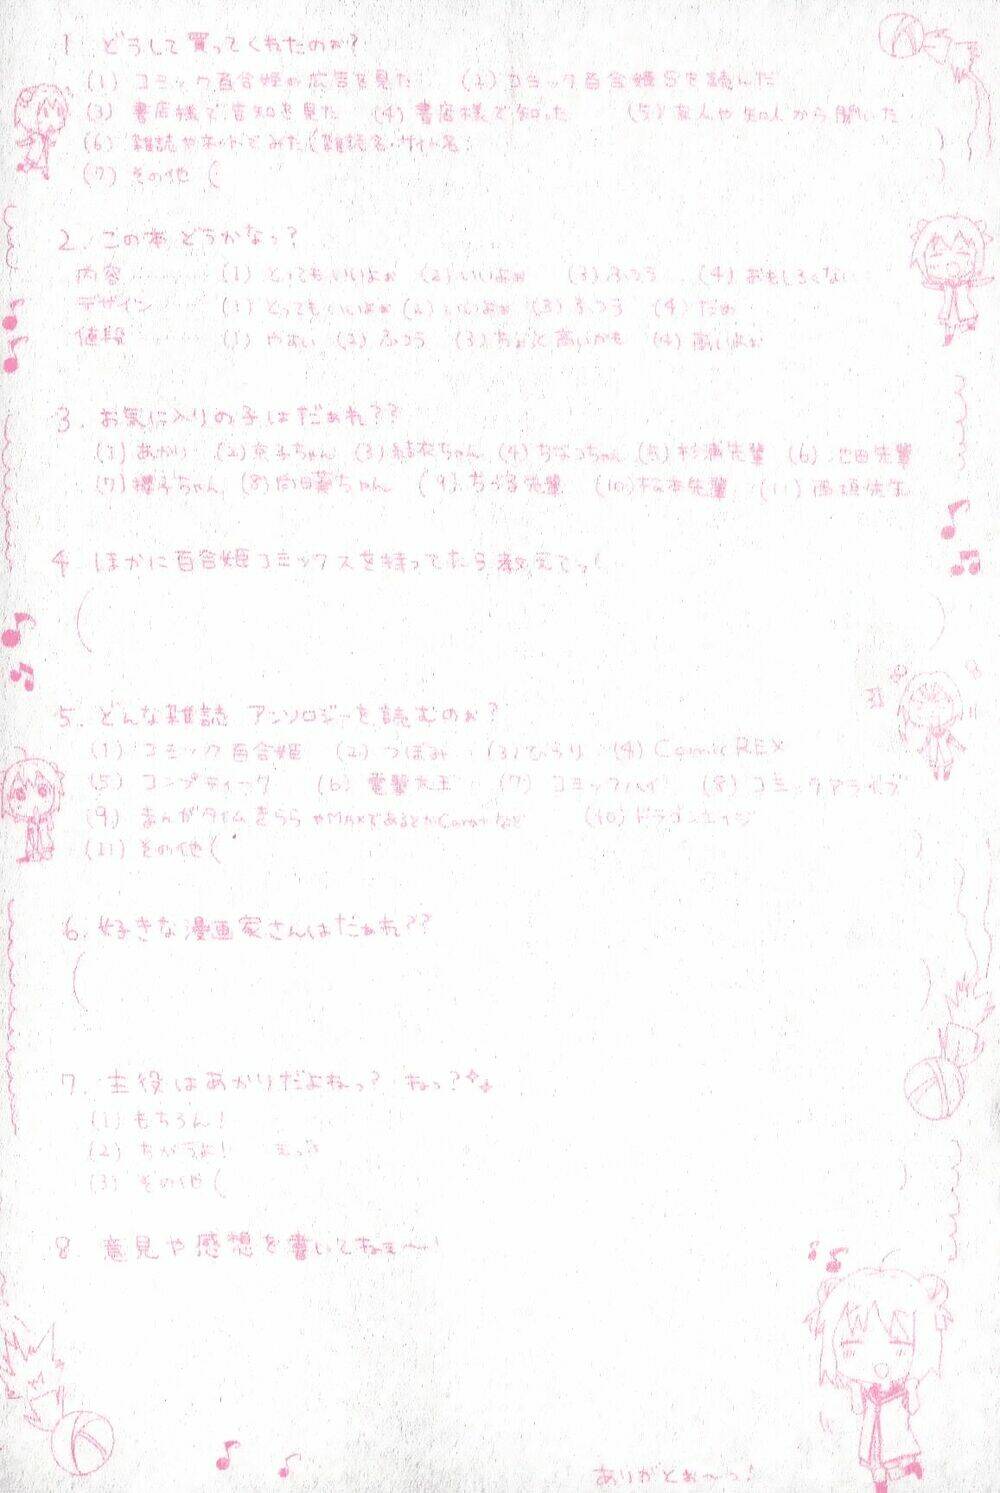 1. どうして買ってくれたのぉ?
(1) コミック百合姫の広告を見た (2) コミック百合姫Sを読んだ
(3) 書店様で告知を見た (4) 書店様で知った (5) 友人や知人から聞いた
(6) 雑誌やネットでみた(雑誌名・サイト名: )
(7) その他 ( )
2. この本どうかなっ?
内容 (1) とってもいいよぉ (2) いいよぉ (3) ふつう (4) おもしろくない
デザイン (1) とってもいいよぉ (2) いいよぉ (3) ふつう (4) だめ
値段 (1) やすい (2) ふつう (3) ちょっと高いかも (4) 高いよぉ
3. お気に入りの子はだぁれ??
(1) あかり (2) 京子ちゃん (3) 結衣ちゃん (4) ちなつちゃん (5) 杉浦先輩 (6) 池田先輩
(7) 櫻子ちゃん (8) 向日葵ちゃん (9) ちづる先輩 (10) 松本先輩 (11) 西垣先生
4 ほかに百合姫コミックスを持ってたら教えてっ!
( )
5. どんな雑誌 アンソロジーを読むのぉ?
(1) コミック百合姫 (2) つぼみ (3) ひらり (4) Comic REX
(5) コンプティーク (6) 電撃大王 (7) コミックハイ (8) コミックアライブ
(9) まんがタイムきららやMAXであるとかCaratなど (10) ドラゴンエイジ
(11) その他 ( )
6. 好きな漫画家さんはだぁれ??
( )
7. 主役はあかりだよねっ? ねっ?
(1) もちろん!
(2) ちがうよ!
(3) その他 ( )
8 意見や感想を書いてねぇ〜!
ありがとぉ〜っ♪